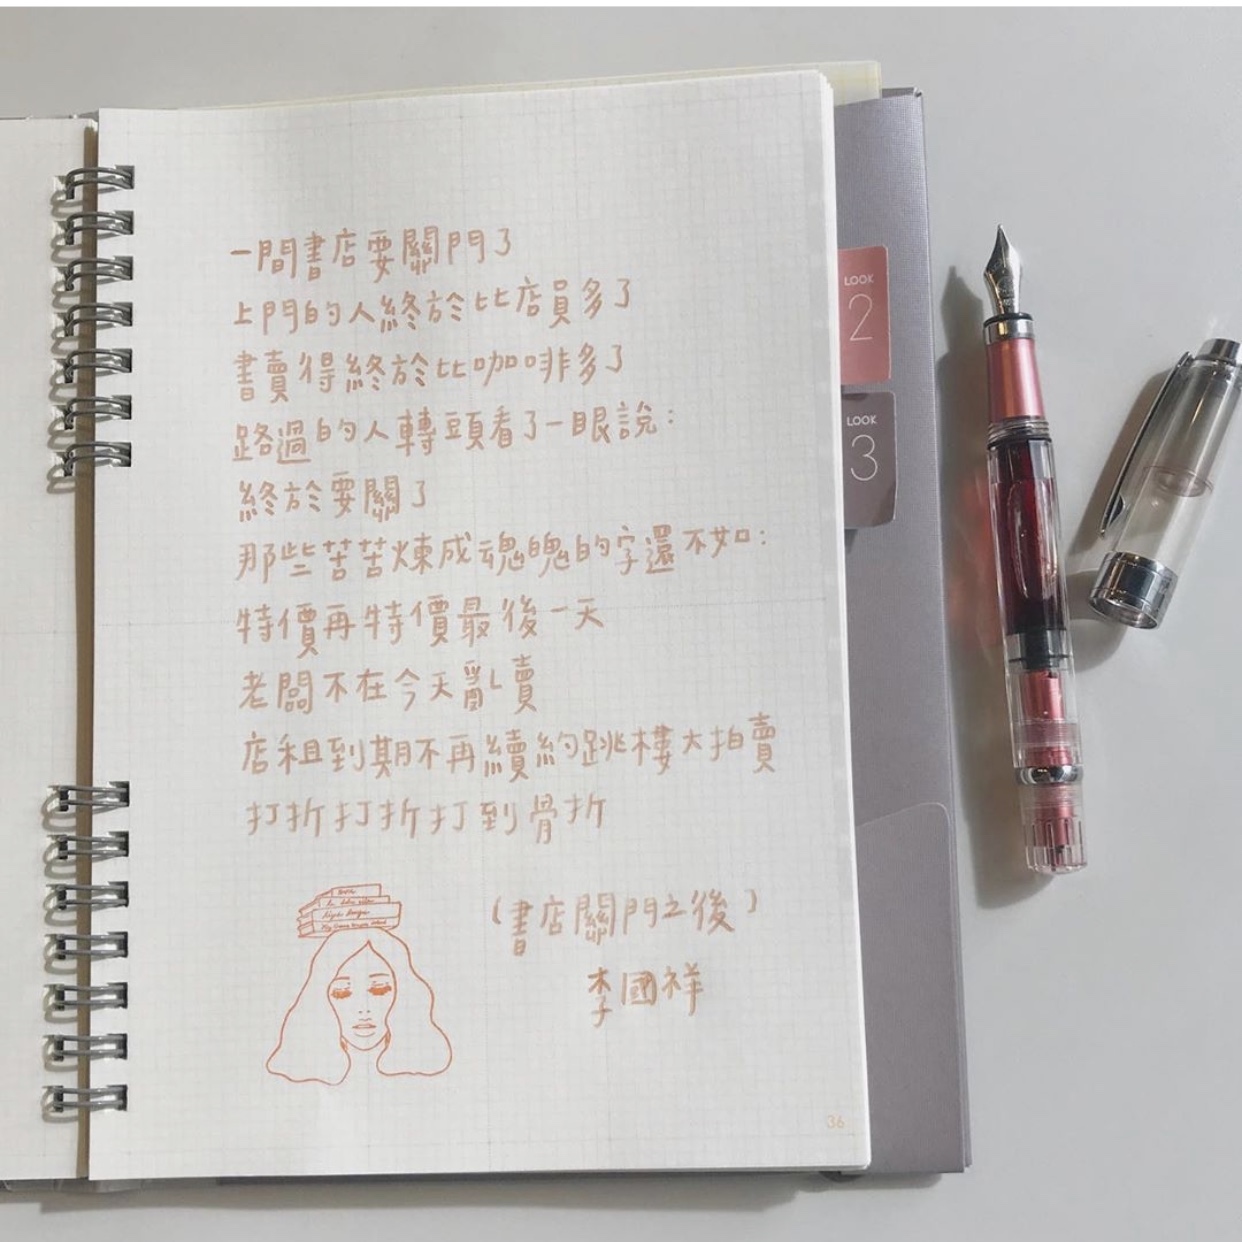 一間書店要關門了
上門的人終於比店員多了
書賣得終於比咖啡多了
路過的人轉頭看了一眼說：
終於要關了
那些苦苦煉成魂魄的字還不如：
特價再特價最後一天
老闆不在今天亂賣
店租到期不再續約跳樓大拍賣
打折打折打到骨折
（書店關門之後）
李國祥
36
LOOK
2
LOOK
3